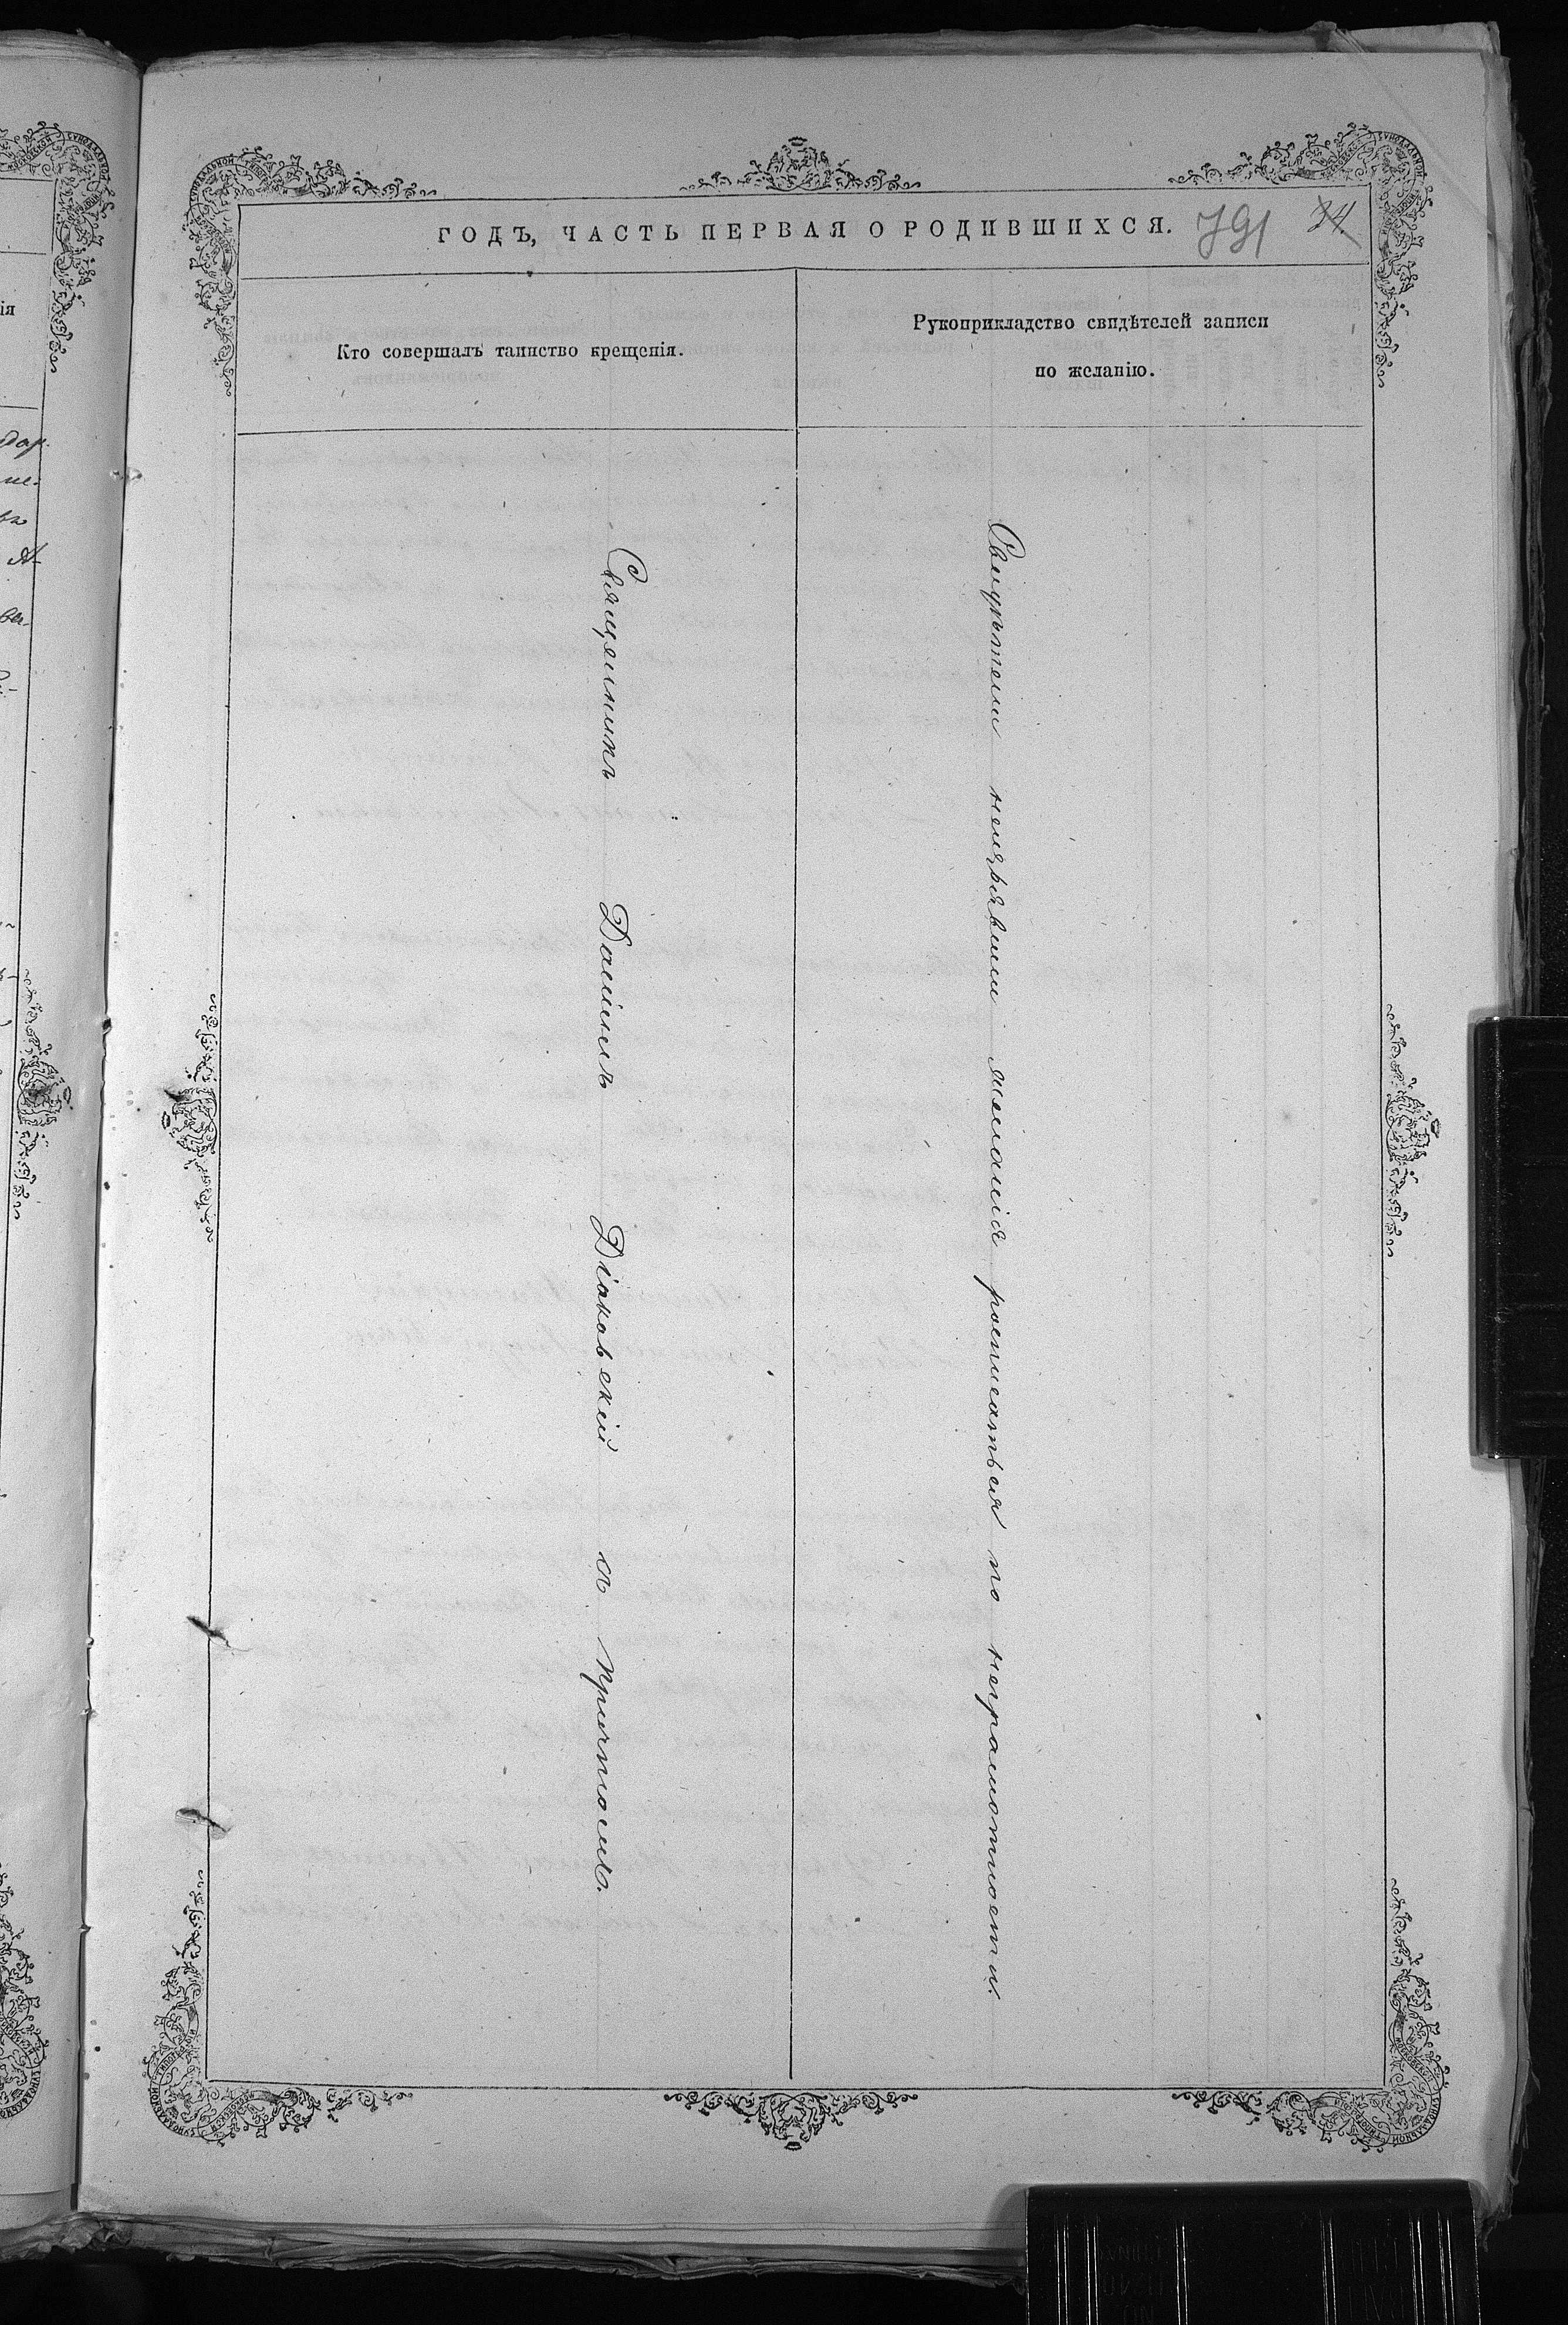 ГОДЪ, ЧАСТЬ ПЕРВАЯ О РОДИВШИХСЯ.
791
34
Кто совершалъ таинство крещенія.
Рукоприкладство свидѣтелей записи
по желанію.
Священникъ Даніилъ Діаковскій съ причтомъ.
Свидѣтели неизъявили желанія росписаться по неграмотности.